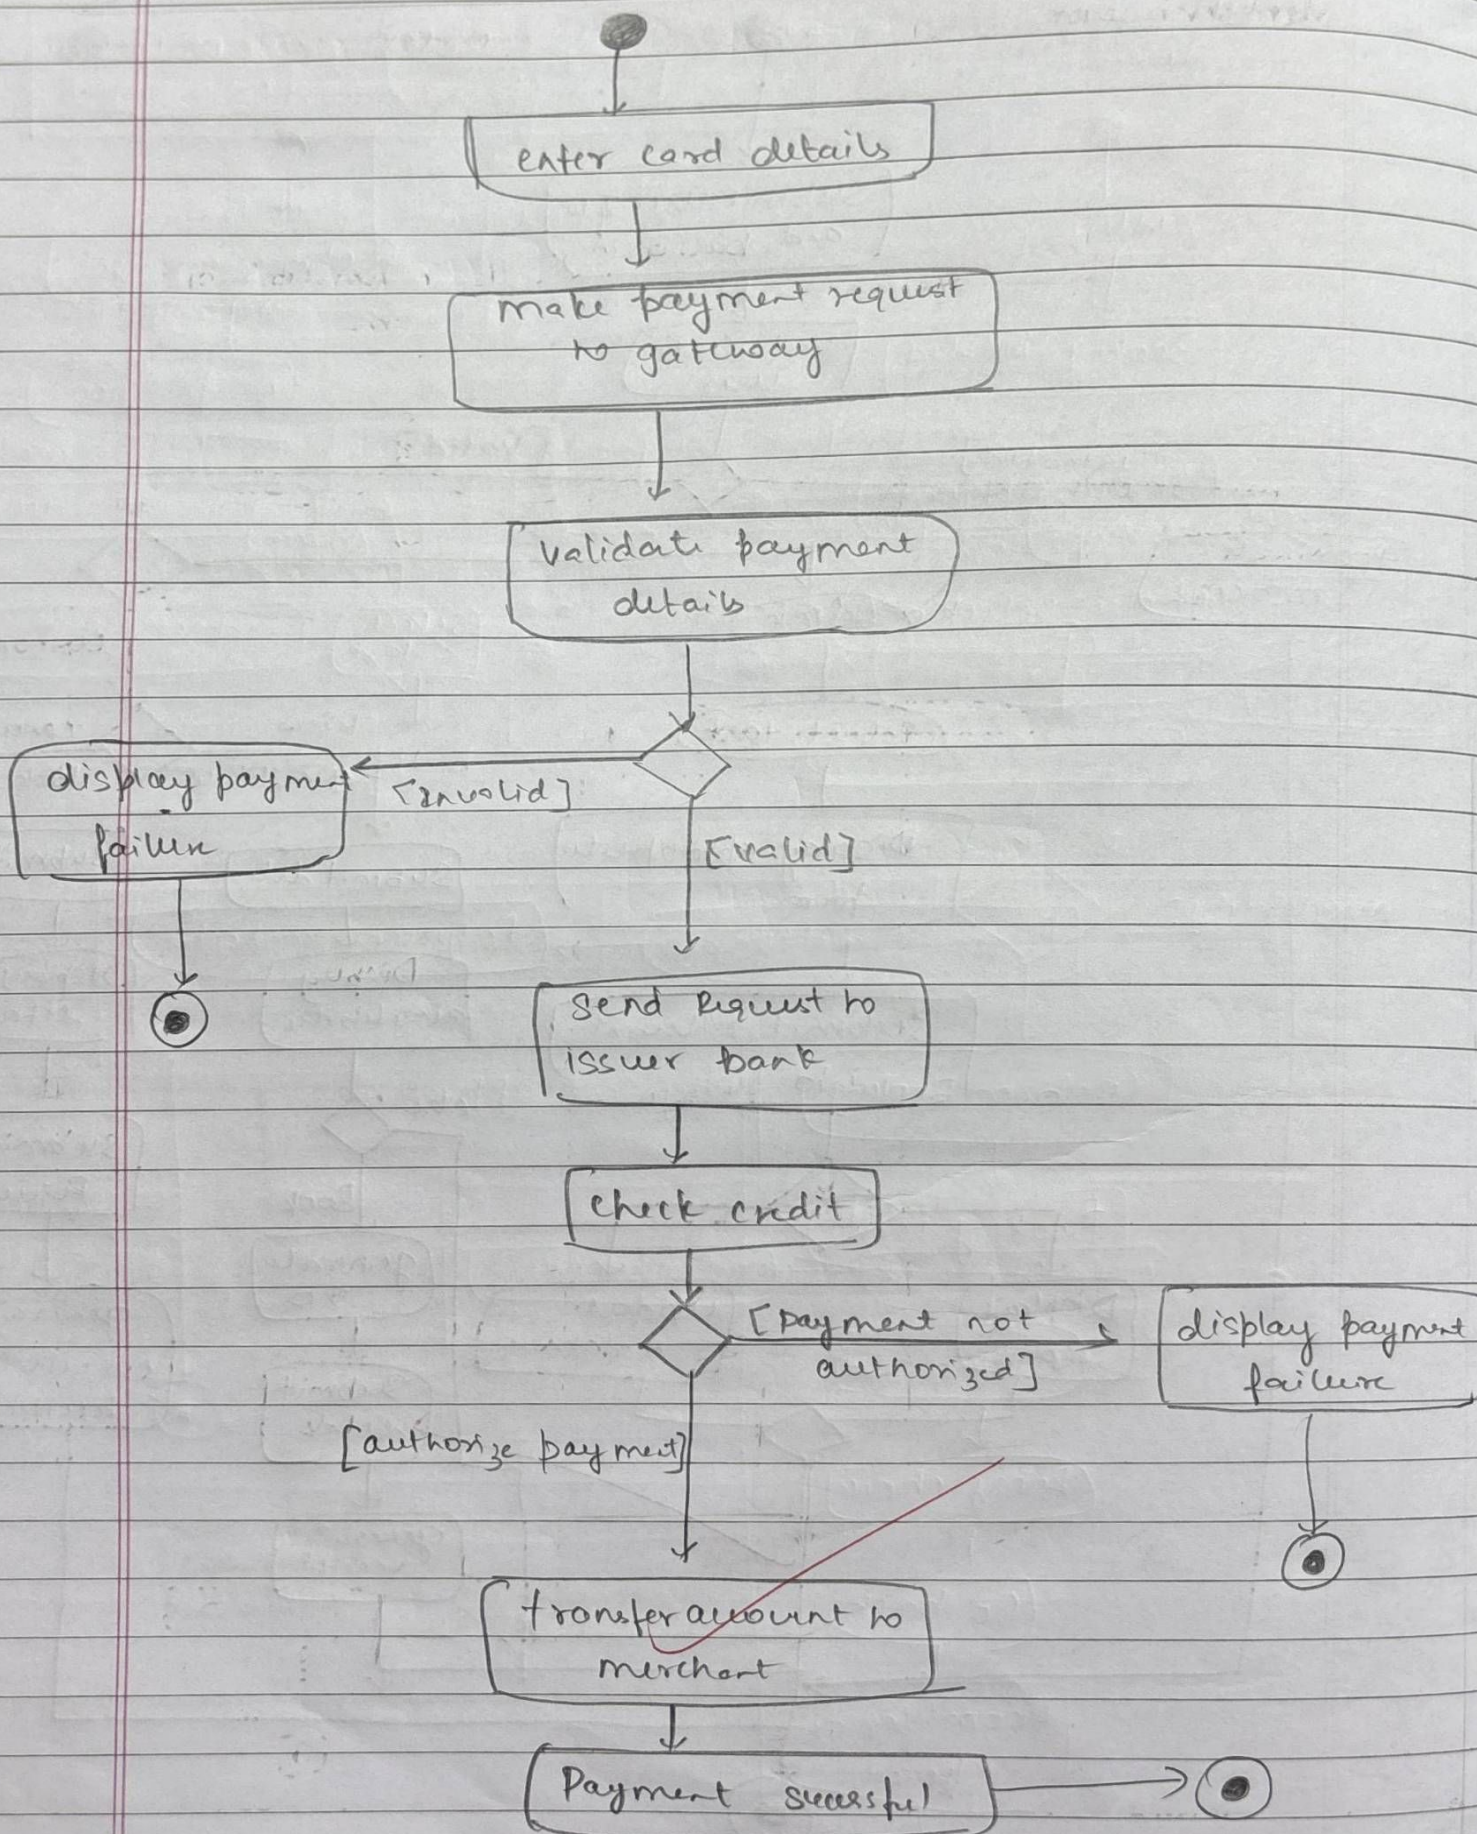 enter card details
make payment request
to gateway
validate payment
details
display payment
failure
[Invalid]
[valid]
Send Request to
issuer bank
check credit
[payment not
authorized]
display payment
failure
[authorize payment]
transfer account to
merchant
Payment successful